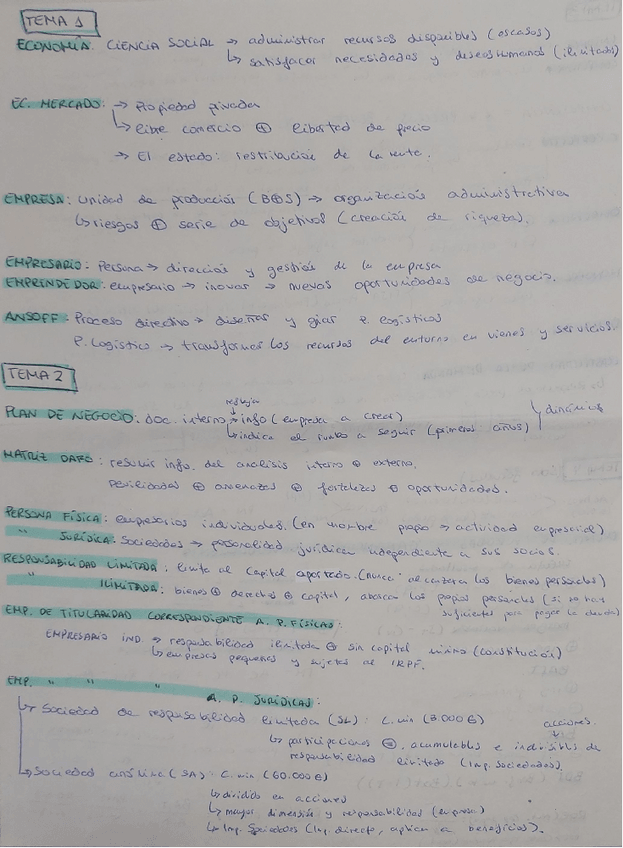 TEMA 1
ECONOMÍA. CIENCIA SOCIAL → administrar recursos disponibles (escasos)
↳ satisfacer necesidades y deseos humanos (ilimitados)
EC. MERCADO: → Propiedad privada
↳ libre comercio ⊕ libertad de precio
→ El estado: restribución de la renta.
EMPRESA: Unidad de producción (B⊕S) → organización administrativa
↳ riesgos ⊕ serie de objetivos (creación de riqueza).
EMPRESARIO: Persona → dirección y gestión de la empresa
EMPRENDEDOR: empresario → inovar → nuevos oportunidades de negocio.
ANSOFF: Proceso directivo → diseñar y guiar P. logísticos
P. Logístico → transformar los recursos del entorno en vienes y servicios.
TEMA 2
PLAN DE NEGOCIO: doc. interno → info (empresa a crear)
reflejar
↳ indica el rumbo a seguir (primeros años)
dinámico
MATRIZ DAFO: resumir info. del analisis interno ⊕ externo.
Devilidades ⊕ amenazas ⊕ fortalezas ⊕ oportunidades.
PERSONA FÍSICA: empresarios individuales. (en nombre propio → actividad empresarial)
" JURÍDICA: Sociedades → personalidad jurídica independiente a sus socios.
RESPONSABILIDAD LIMITADA: limite al capital aportado. (nunca alcazara los bienes personales)
" ILIMITADA: bienes ⊕ derechos ⊕ capital, abarca los propios personales (si no hay
suficientes para pagar la deuda)
EMP. DE TITULARIDAD CORRESPONDIENTE A. P. FÍSICAS:
EMPRESARIO IND. → responsabilidad ilimitada ⊕ sin capital mínimo (constitución)
↳ empresas pequeñas y sujetas al IRPF.
EMP. " " " A. P. JURÍDICAS:
↳ Sociedad de responsabilidad limitada (SL): C. min (3.000 €)
acciones.
↳ participaciones . acumulables e indivisibles de
responsabilidad limitada (Imp. sociedades).
↳ Sociedad anónima (SA): C. min (60.000 €)
↳ dividido en acciones
↳ mayor dimensión y responsabilidad (empresa)
↳ Imp. Sociedades (Imp. directo, aplica a beneficios).